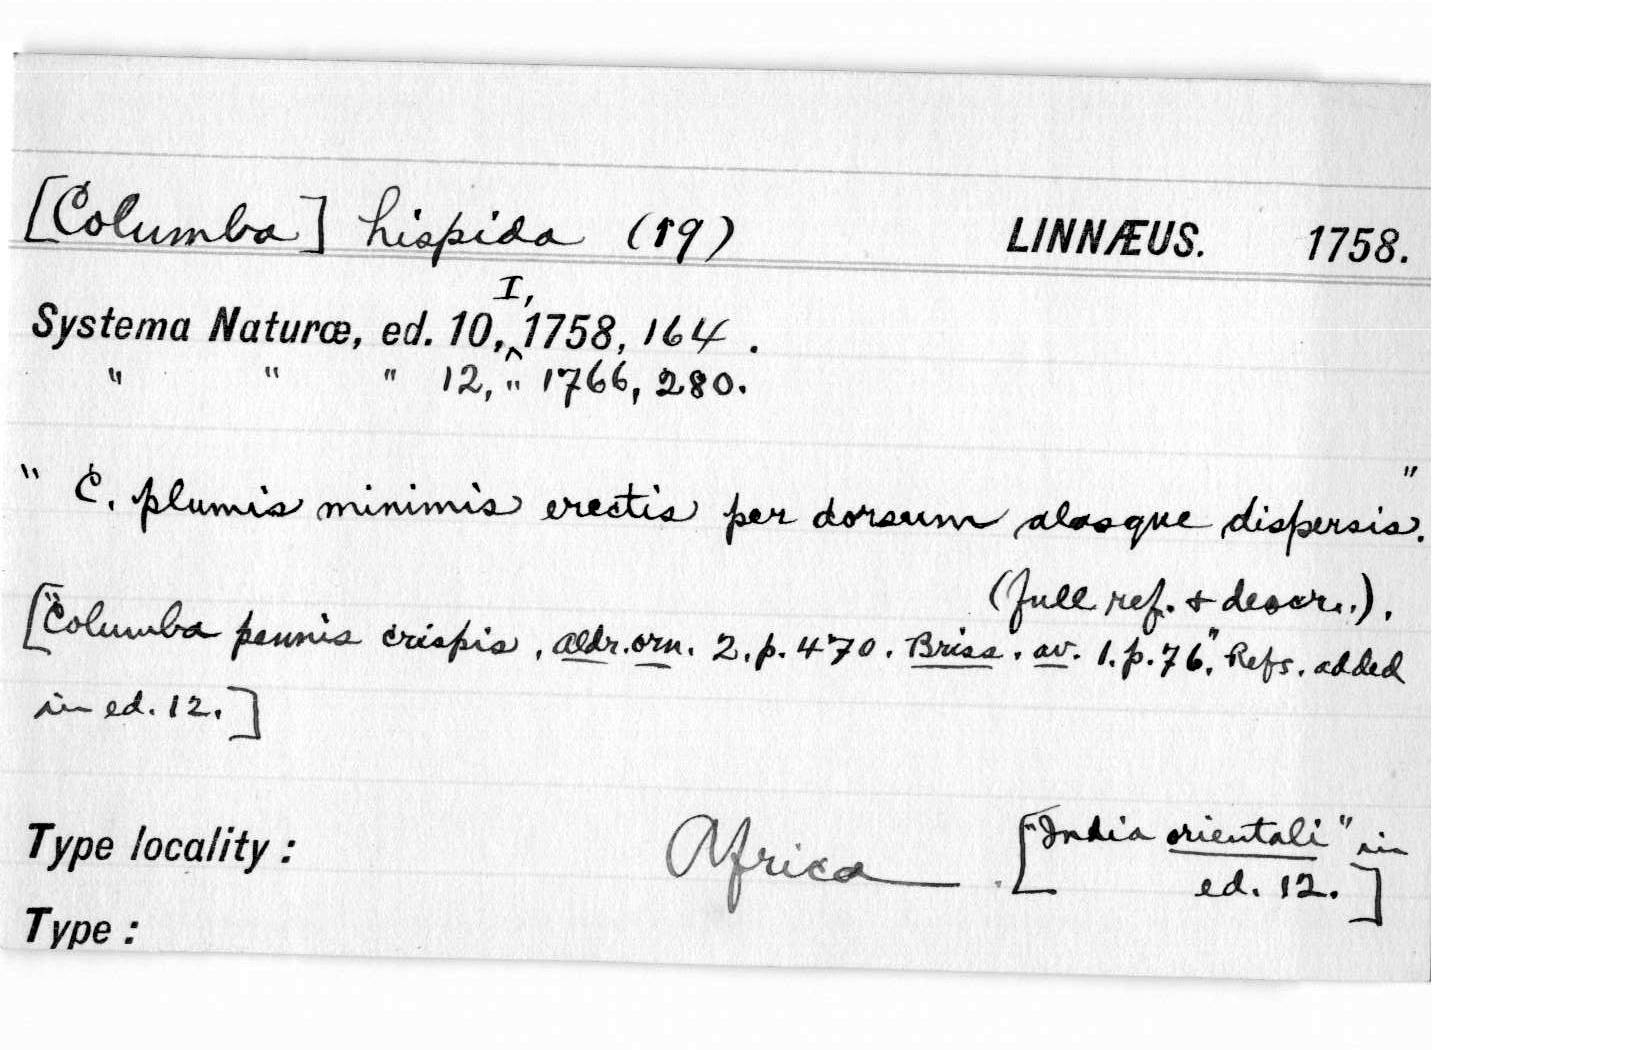 [Columba] hispida (19) LINNÆUS. 1758.
I,
Systema Naturæ, ed. 10, ^ 1758, 164.
" " " 12, " 1766, 280.
" C. plumis minimis erectis per dorsum alasque dispersis."
(full ref. + descr..).
["Columba pennis crispis. Aldr. orn. 2. p. 470. Briss. av. 1. p. 76." Refs. added
in ed. 12.]
Type locality: Africa. ["India orientali" in
ed. 12.]
Type: